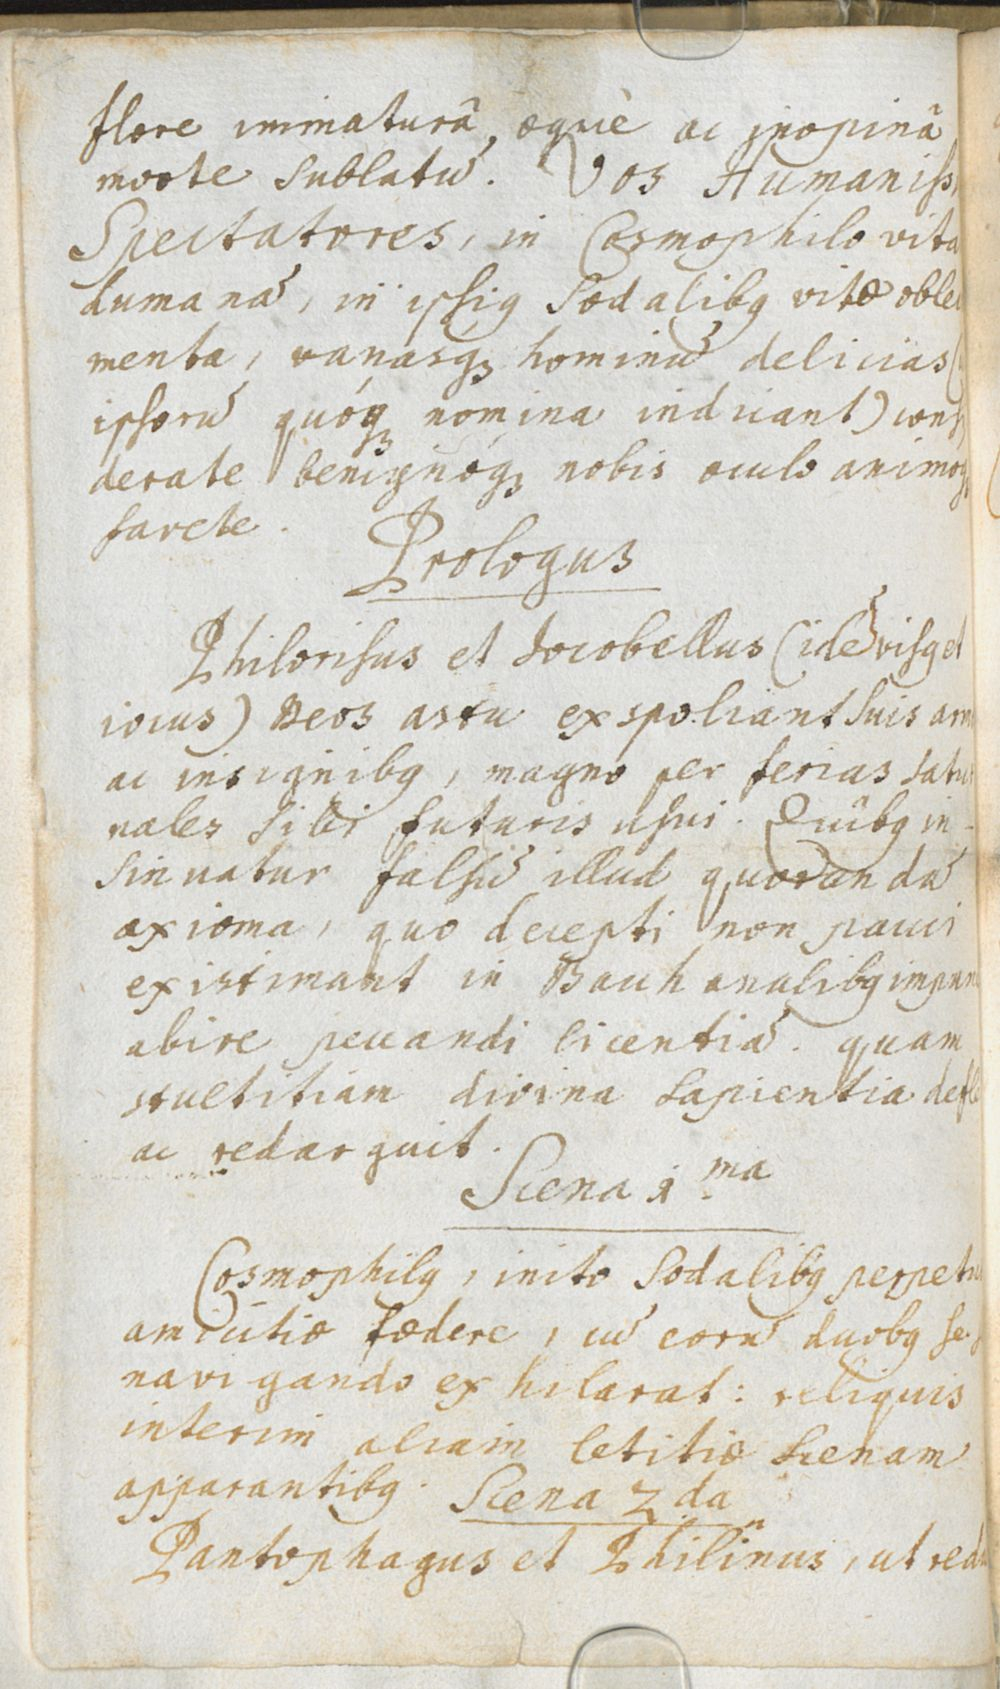 flore immaturâ, æquè ac inopinâ
morte sublatū. Vos Humaniss,
Spectatores, in Cosmophilo vita
humanā, in ipsiꝰ Sodalibꝰ vitæ oblec
menta, vanasqꝫ hominū delicias (
ipsorū quóqꝫ nomina indicant) consi
derate benignóqꝫ nobis oculo animoqꝫ
favete.
Prologus
Philorisus et Jocobellus (idē risꝰ et
iocus) Deos astu exspoliant suis arm
ac insignibꝰ, magno per ferias satur
nales sibi futuris usui. Quîbꝰ in-
sinuatur falsū illud quorundā
axioma, quo decepti non pauci
existimant in Bachanalibꝰ impune
abire peccandi licentiā. quam
stultitiam divina Sapientia defle
ac redarguit.
Scena 1.ma
Cosmophilꝰ, inito Sodalibꝰ perpetu
amicitiæ fædere, cū eorū duobꝰ se
navigando exhilarat: reliquis
interim aliam letitiæ Scenam
apparantibꝰ.
Scena 2da
Pantophagus et Philinnus, ut red